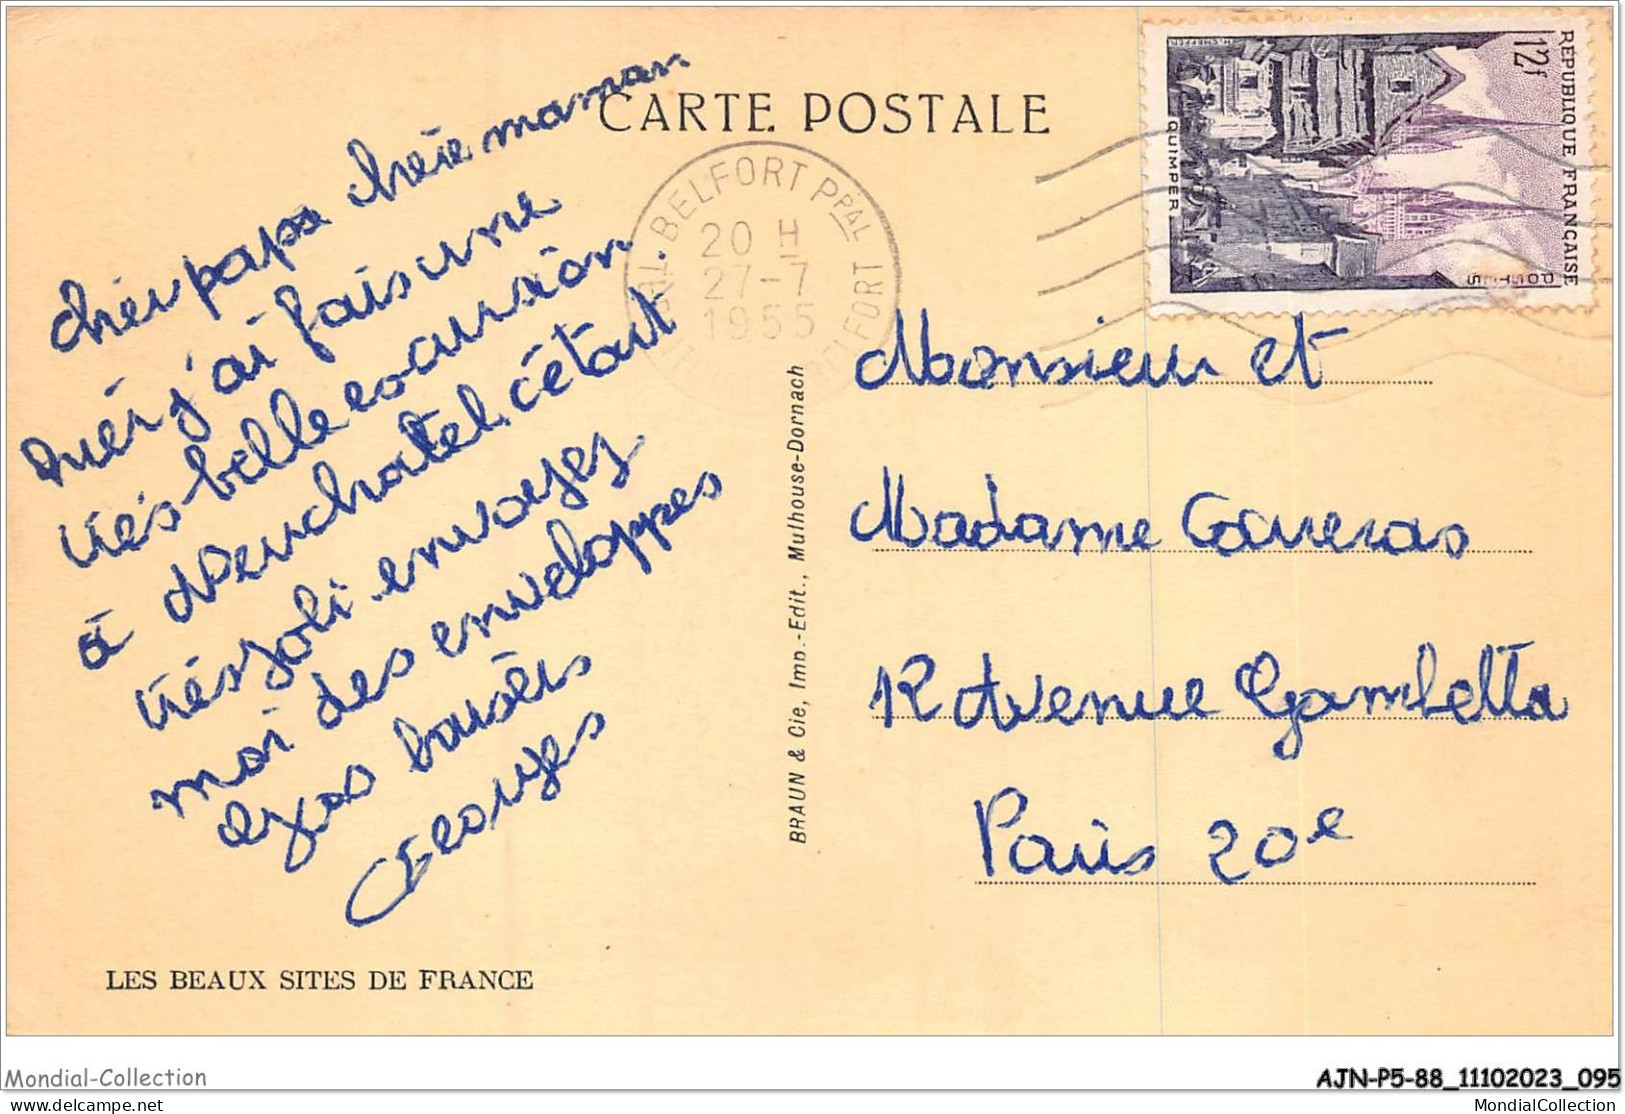 CARTE POSTALE
chér papa chérie maman
hiér j'ai fais une
trés belle excursion
à Neuchatel. c'était
trés joli envoyez
moi des enveloppes
gros baisérs
Georges
LES BEAUX SITES DE FRANCE
BRAUN & Cie, Imp.-Edit., Mulhouse-Dornach
BELFORT PPAL
20 H
27-7
1955
RÉPUBLIQUE FRANÇAISE
12f
POSTES
QUIMPER
Monsieur et
Madame Gareras
12 Avenue Gambetta
Paris 20e
Mondial-Collection
delcampe.net
AJN-P5-88_11102023_095
MondialCollection